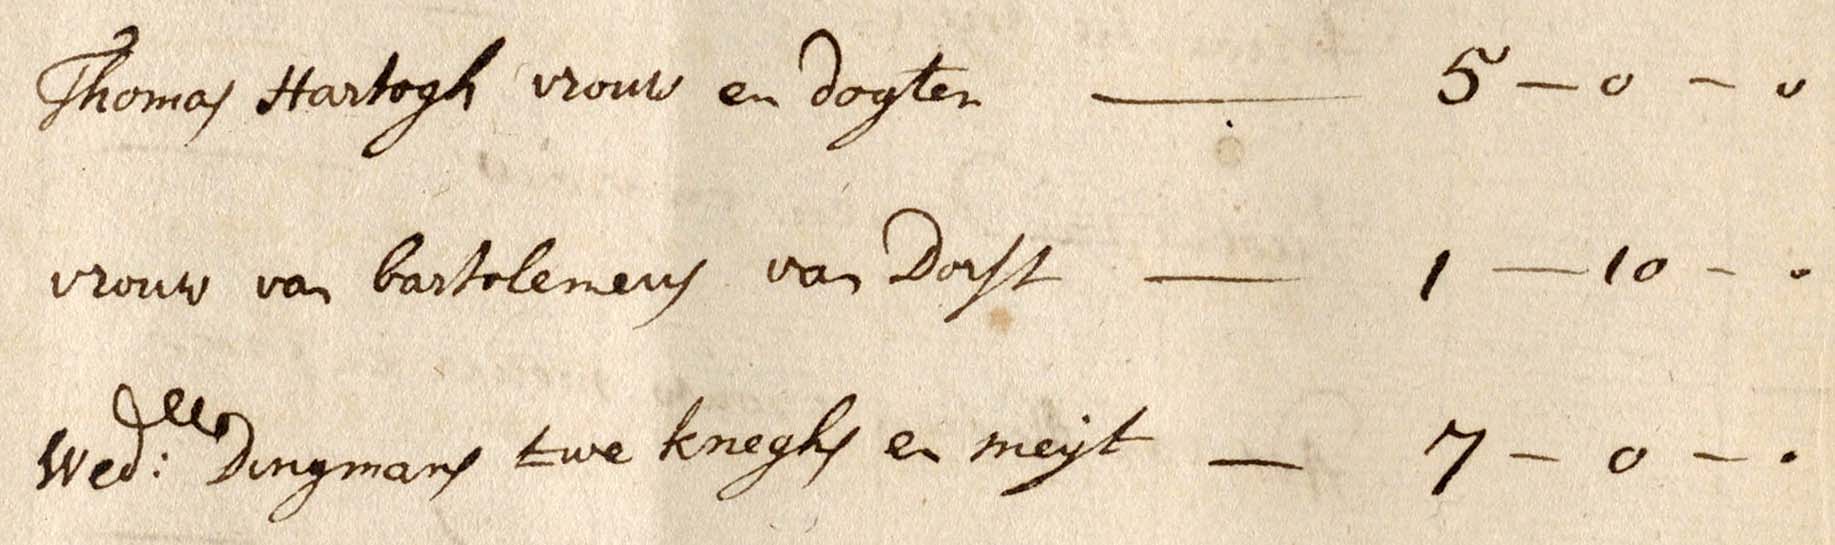 Thomas Hartogh vrouw en dogter — 5 – 0 – 0
vrouw van bartolemeus van Dorst — 1 – 10 – 0
Wed: Dingmans twe kneghs en meijt — 7 – 0 – 0